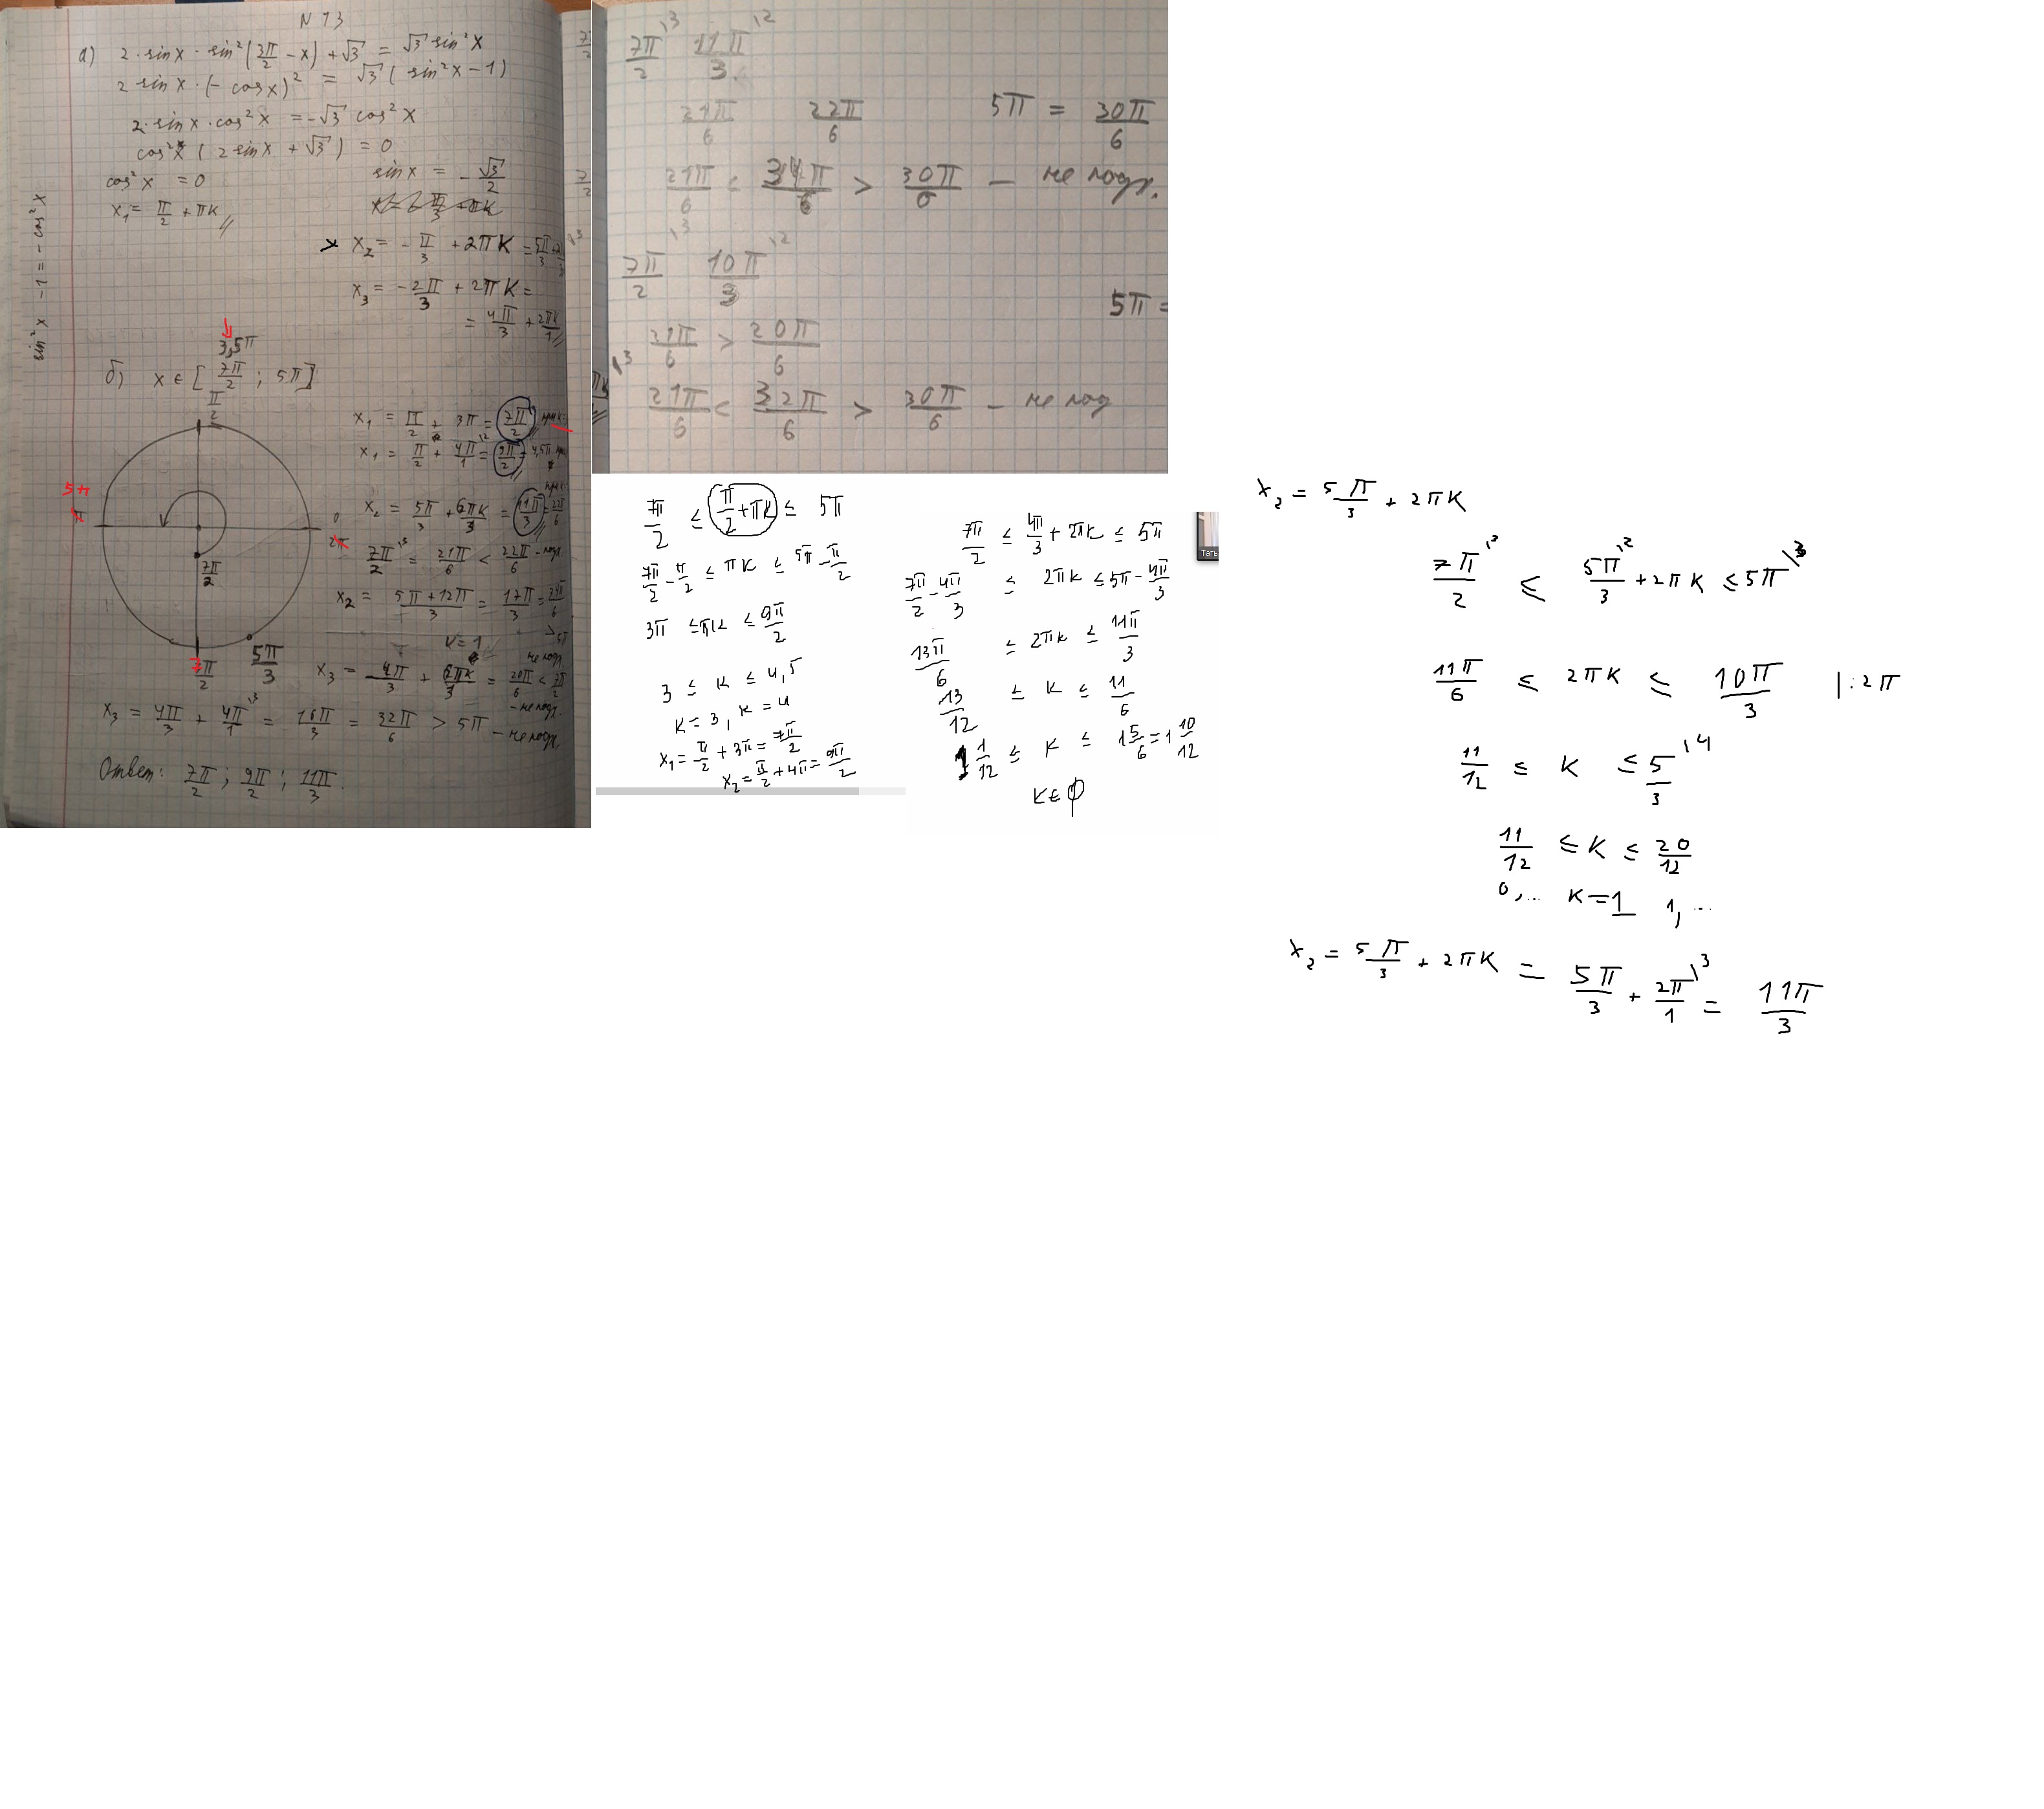 N 13
а) 2·sinx·sin²(3π/2 − x) + √3 = √3 sin²x
2 sinx·(−cosx)² = √3(sin²x − 1)
2·sinx·cos²x = −√3 cos²x
cos²x (2 sinx + √3) = 0
cos²x = 0
sinx = −√3/2
x₁ = π/2 + πK
x₂ = −π/3 + 2πK = 5π/3 +
x₃ = −2π/3 + 2πK =
= 4π/3 + 2πK/1
sin²x − 1 = −cos²x
3,5π
б) x ∈ [7π/2 ; 5π]
π/2
5π
π
0
2π
7π/2
3π/2
5π/3
x₁ = π/2 + 3π = 7π/2
x₁ = π/2 + 4π/1 = 9π/2 = 4,5π
x₂ = 5π/3 + 6πK/3 = 11π/3 = 22π/6
7π/2 = 21π/6 < 22π/6 - подх.
x₂ = 5π+12π/3 = 17π/3 = 34π/6
> 5π
не подх.
K=1
x₃ = 4π/3 + 6πK/3 = 20π/6 < 7π/2
- не подх.
x₃ = 4π/3 + 4π/1 = 16π/3 = 32π/6 > 5π - не подх.
Ответ: 7π/2 ; 9π/2 ; 11π/3.
7π/2 11π/3
21π/6 22π/6 5π = 30π/6
21π/6 < 34π/6 > 30π/6 — не подх.
7π/2 10π/3
5π =
21π/6 > 20π/6
21π/6 < 32π/6 > 30π/6 — не под
7π/2 ≤ π/2 + πK ≤ 5π
7π/2 − π/2 ≤ πK ≤ 5π − π/2
3π ≤ πK ≤ 9π/2
3 ≤ K ≤ 4,5
K=3, K=4
x₁ = π/2 + 3π = 7π/2
x₂ = π/2 + 4π = 9π/2
7π/2 ≤ 4π/3 + 2πK ≤ 5π
7π/2 − 4π/3 ≤ 2πK ≤ 5π − 4π/3
13π/6 ≤ 2πK ≤ 11π/3
13/12 ≤ K ≤ 11/6
1 1/12 ≤ K ≤ 1 5/6 = 1 10/12
K ∈ ∅
Тать
x₂ = 5π/3 + 2πK
7π/2 ≤ 5π/3 + 2πK ≤ 5π
11π/6 ≤ 2πK ≤ 10π/3 |:2π
11/12 ≤ K ≤ 5/3
11/12 ≤ K ≤ 20/12
0,... K=1 1,...
x₂ = 5π/3 + 2πK = 5π/3 + 2π/1 = 11π/3